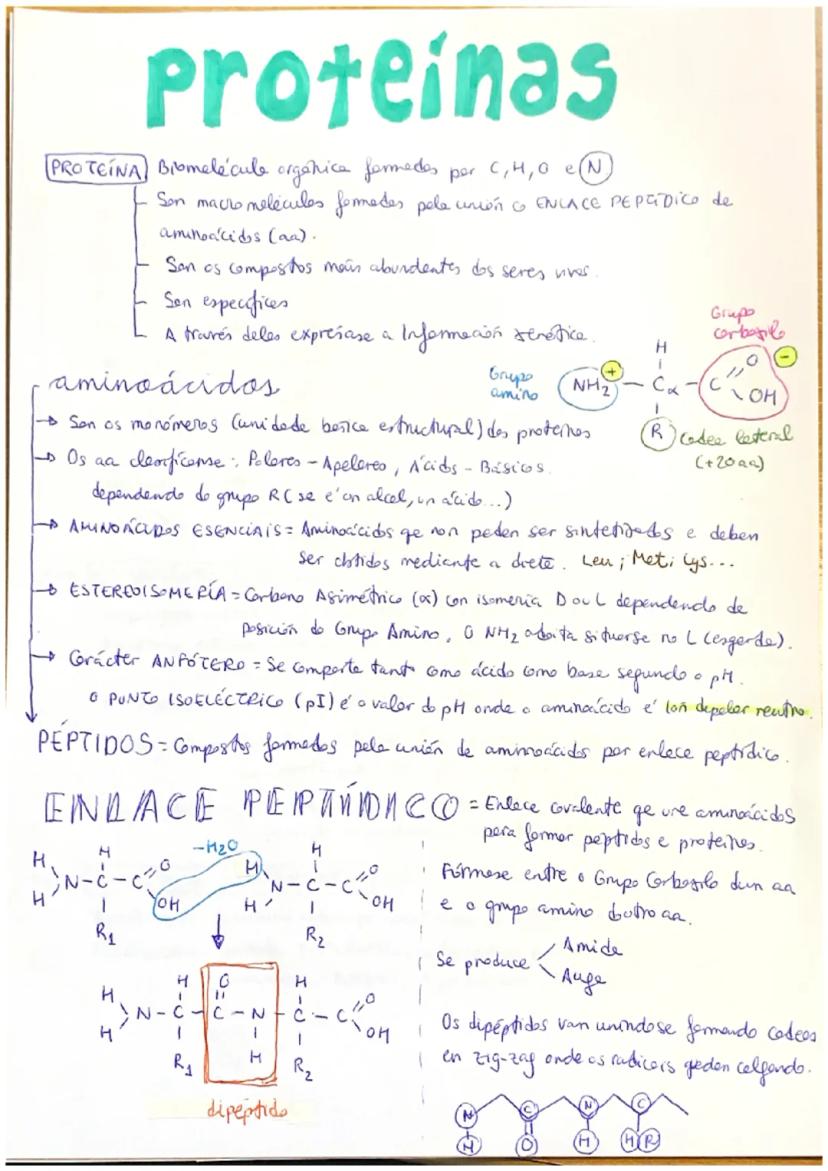 proteínas
PROTEÍNA Biomolécula orgánica formadas por C, H, O e N
Son macromoléculas formadas pola unión o ENLACE PEPTÍDICO de
aminoácidos (aa).
Son os compostos máis abundantes dos seres vivos.
Son específicas
A través delas exprésase a Información xenética.
Grupo
carboxilo
aminoácidos
Grupo
amino
H
NH2 + - Cα - C O OH -
R Cadea lateral
(+20aa)
→ Son os monómeros (unidade básica estructural) das proteínas
→ Os aa clasifícanse: Polares - Apolares, Ácidos - Básicos.
dependendo do grupo R (se é un alcol, un ácido...)
→ AMINOÁCIDOS ESENCIAIS = Aminoácidos qe non poden ser sintetizados e deben
ser obtidos mediante a dieta. Leu; Met; Lys...
→ ESTEREOISOMERÍA = Carbono Asimétrico (α) con isomería D ou L dependendo da
posición do Grupo Amino. O NH2 adoita situarse no L (esqerda).
→ Carácter ANFÓTERO = Se comporta tanto como ácido como base segundo o pH.
O PUNTO ISOELÉCTRICO (pI) é o valor do pH onde o aminoácido é Ión dipolar neutro.
PÉPTIDOS = Compostos formados pola unión de aminoácidos por enlace peptídico.
ENLACE PEPTÍDICO = Enlace covalente qe une aminoácidos
para formar péptidos e proteínas.
-H2O
H H N - C - C O OH H H N - C - C O OH
H H
R1 R2
Fórmase entre o Grupo Carboxilo dun aa
e o grupo amino doutro aa.
Se produce Amida
Auga
H H N - C - C - N - C - C O OH
H O H
R1 H R2
dipéptido
Os dipéptidos van uníndose formando cadeas
en zig-zag onde os radicais qedan colgando.
N C N C
H O H H R